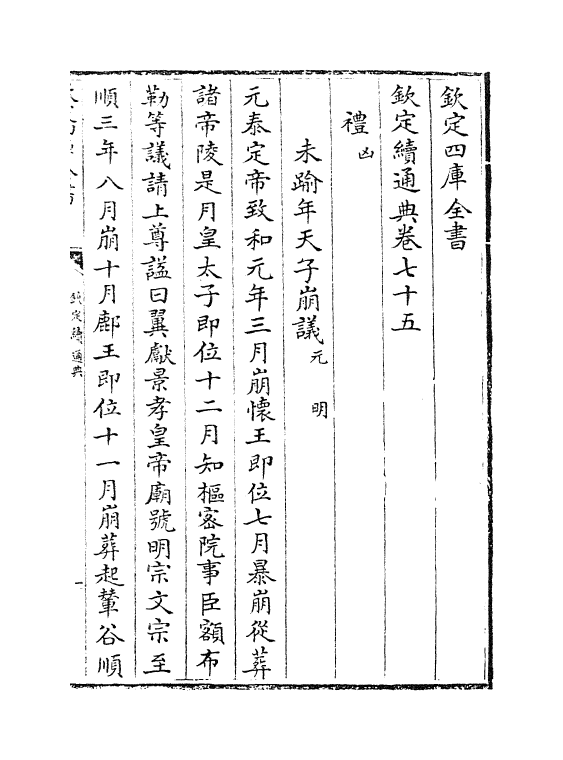 欽定四庫全書
欽定續通典卷七十五
禮 凶
未踰年天子崩議 元 明
元泰定帝致和元年三月崩懷王即位七月暴崩從葬
諸帝陵是月皇太子即位十二月知樞密院事臣額布
勒等議請上尊諡曰翼獻景孝皇帝廟號明宗文宗至
順三年八月崩十月鄜王即位十一月崩葬起輦谷順
欽定續通典
一